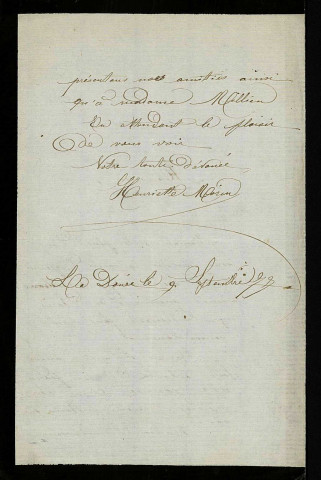 présentons nos amitiés ainsi
qu'à madame Millien
En attendant le plaisir
de vous voir
Votre toute dévouée
Henriette
le 9 Septembre